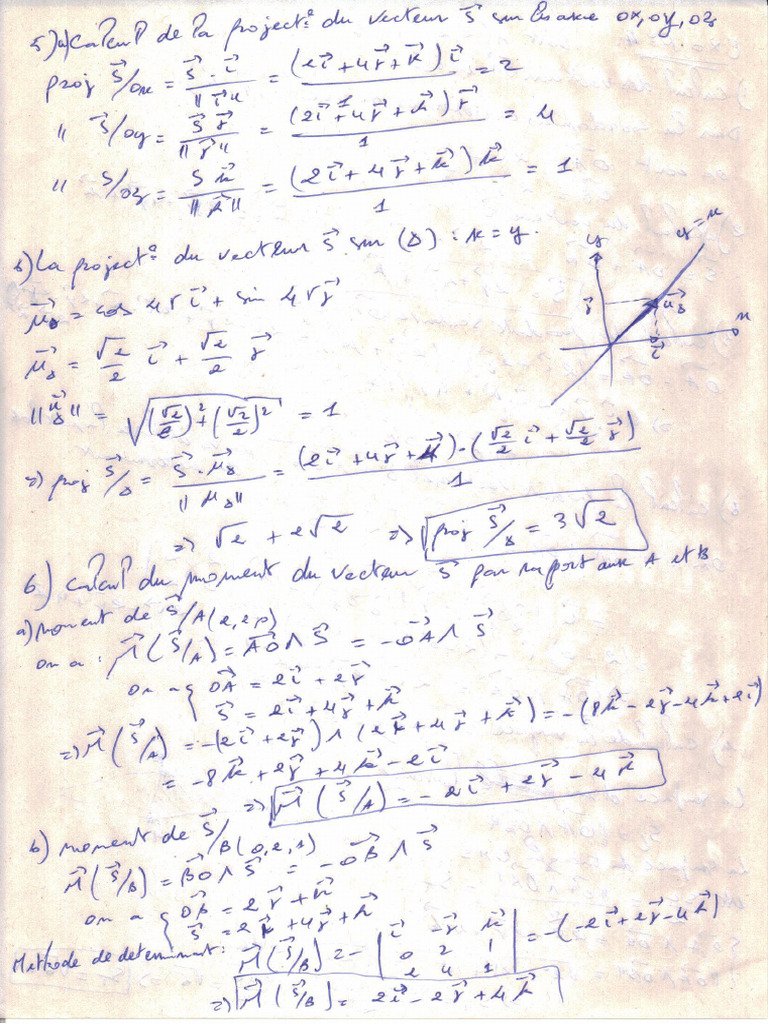 5) a) Calcul de la project° du vecteur S⃗ sur les axes ox, oy, oz
proj S⃗/ox = S⃗ · i⃗ / ||i⃗|| = (2i⃗ + 4j⃗ + k⃗) i⃗ / 1 = 2
" S⃗/oy = S⃗ j⃗ / ||j⃗|| = (2i⃗ + 4j⃗ + k⃗) j⃗ / 1 = 4
" S⃗/oz = S k⃗ / ||k⃗|| = (2i⃗ + 4j⃗ + k⃗) k⃗ / 1 = 1
b) La project° du vecteur S⃗ sur (Δ) : x = y.
u⃗Δ = cos 45 i⃗ + sin 45 j⃗
u⃗Δ = √2/2 i⃗ + √2/2 j⃗
||u⃗Δ|| = √((√2/2)² + (√2/2)²) = 1
y
y = x
j⃗
u⃗Δ
x
i⃗
=> proj S⃗/Δ = S⃗ · u⃗Δ / ||uΔ|| = (2i⃗ + 4j⃗ + k⃗) · (√2/2 i⃗ + √2/2 j⃗) / 1
=> √2 + 2√2 => proj S⃗/Δ = 3√2
6) Calcul du moment du vecteur S⃗ par rapport aux A et B
a) moment de S⃗/A(2,2,0)
on a : M⃗(S⃗/A) = AO⃗ ∧ S⃗ = -OA⃗ ∧ S⃗
on a { OA⃗ = 2i⃗ + 2j⃗
S⃗ = 2i⃗ + 4j⃗ + k⃗
=> M⃗(S⃗/A) = -(2i⃗ + 2j⃗) ∧ (2i⃗ + 4j⃗ + k⃗) = -(8k⃗ - 2j⃗ - 4k⃗ + 2i⃗)
= -8k⃗ + 2j⃗ + 4k⃗ - 2i⃗
=> M⃗(S⃗/A) = -2i⃗ + 2j⃗ - 4k⃗
b) moment de S⃗/B(0,2,1)
M⃗(S⃗/B) = BO⃗ ∧ S⃗ = -OB⃗ ∧ S⃗
on a { OB⃗ = 2j⃗ + k⃗
S⃗ = 2i⃗ + 4j⃗ + k⃗
Methode de determinant: M⃗(S⃗/B) = - | i⃗ -j⃗ k⃗ | = -(-2i⃗ + 2j⃗ - 4k⃗)
0 2 1
2 4 1
=> M⃗(S⃗/B) = 2i⃗ - 2j⃗ + 4k⃗